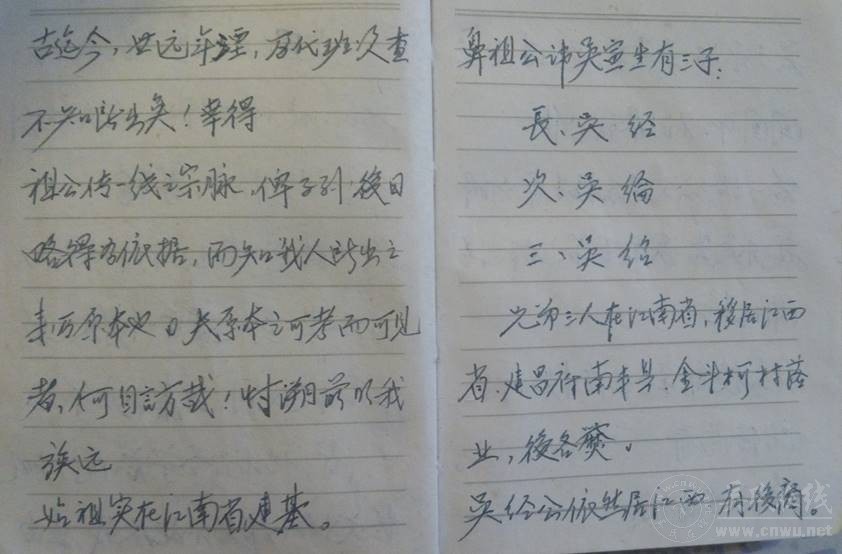 古迄今，世远年湮，历代班次查
不知所出矣！幸得
祖公传一线之宗脉，俾子孙後日
略得有依据，而知我人所出之
来历原本也。夫原本之可考而可见
者，何自訪哉！忖溯前以我
族远
始祖实在江南省建基。
鼻祖公讳吳宣生有三子：
長、吳经
次、吳綸
三、吳绍
兄弟三人在江南省，移居江西
省，建昌府南丰县，金斗柯村落
业，後各爨。
吳经公依然居江西 有後裔。
www.cnwu.net